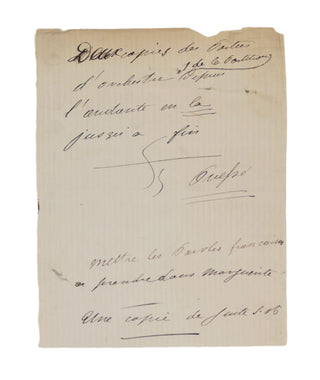 Deux copies des Parties
et de la Partition
d'orchestre Depuis
l'andante en la
jusqu'a fin
mettre les Paroles françaises
prendre dans marguerite
Une copie de suite